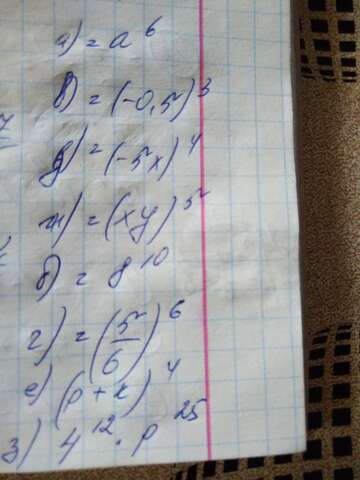 а) = a^6
в) = (-0,5)^3
д) = (-5x)^4
ж) = (xy)^5
б) = 8^10
г) = (5/6)^6
е) (p+k)^4
з) 4^12 · p^25